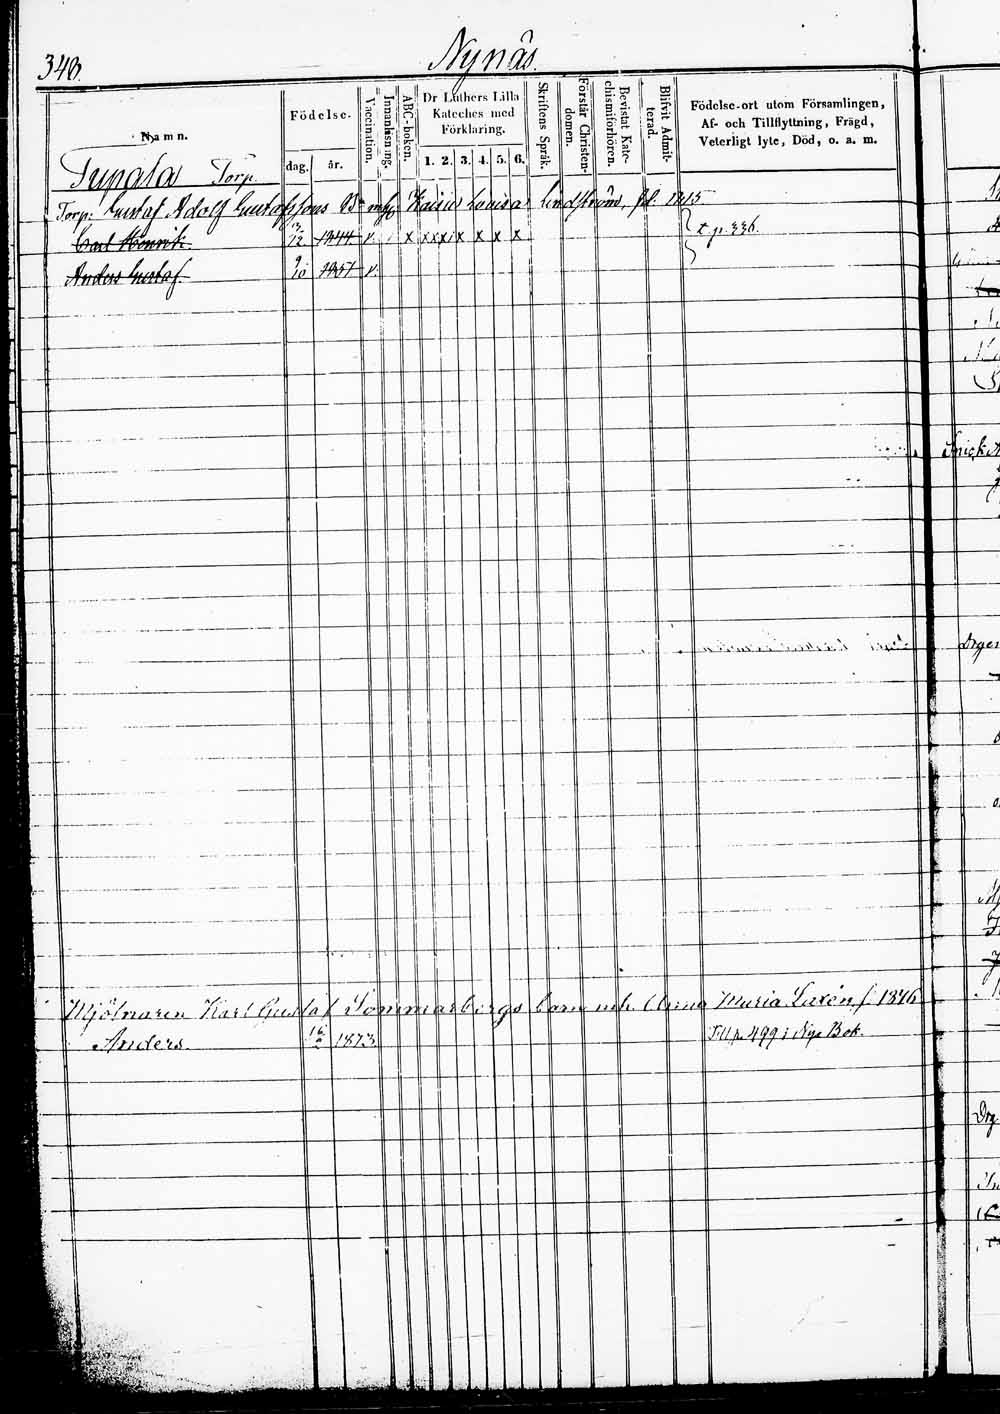 348.
Nynäs.
Namn.
Födelse.
dag. år.
Vaccination.
Innanläsning.
ABC-boken.
Dr Luthers Lilla
Kateches med
Förklaring.
1. 2. 3. 4. 5. 6.
Skriftens Språk.
Förstår Christen-
domen.
Bevistat Kate-
chismiförhören.
Blifvit Admit-
terad.
Födelse-ort utom Församlingen,
Af- och Tillflyttning, Frägd,
Veterligt lyte, Död, o. a. m.
Tupala Torp.
Torp: Gustaf Adolf Gustafssons Bn Kaisa Lovisa Lindström, f. 1815
Carl Henrik 12 1844 v. x x x x x x x x t. p. 336.
Anders Gustaf. 9/10 1851 v.
Mjölnaren Karl Gustaf Sommarbergs barn mh. Anna Maria Laxén, f. 1846
Anders. 1873. Till p. 499 i Nya Bok.